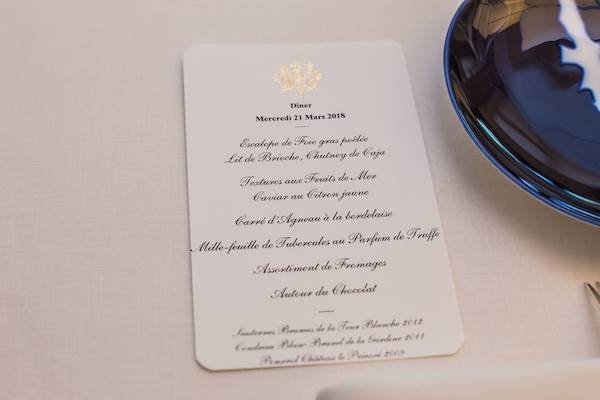 Dîner
Mercredi 21 Mars 2018
-----
Escalope de Foie gras poêlée
Lit de Brioche, Chutney de Caja
Textures aux Fruits de Mer
Caviar au Citron jaune
Carré d'Agneau à la bordelaise
Mille-feuille de Tubercules au Parfum de Truffe
Assortiment de Fromages
Autour du Chocolat
-----
Sauternes Brumes de la Tour Blanche 2012
Condrieu Blanc Brunel de la Gardine 2011
Pomerol Château le 2009